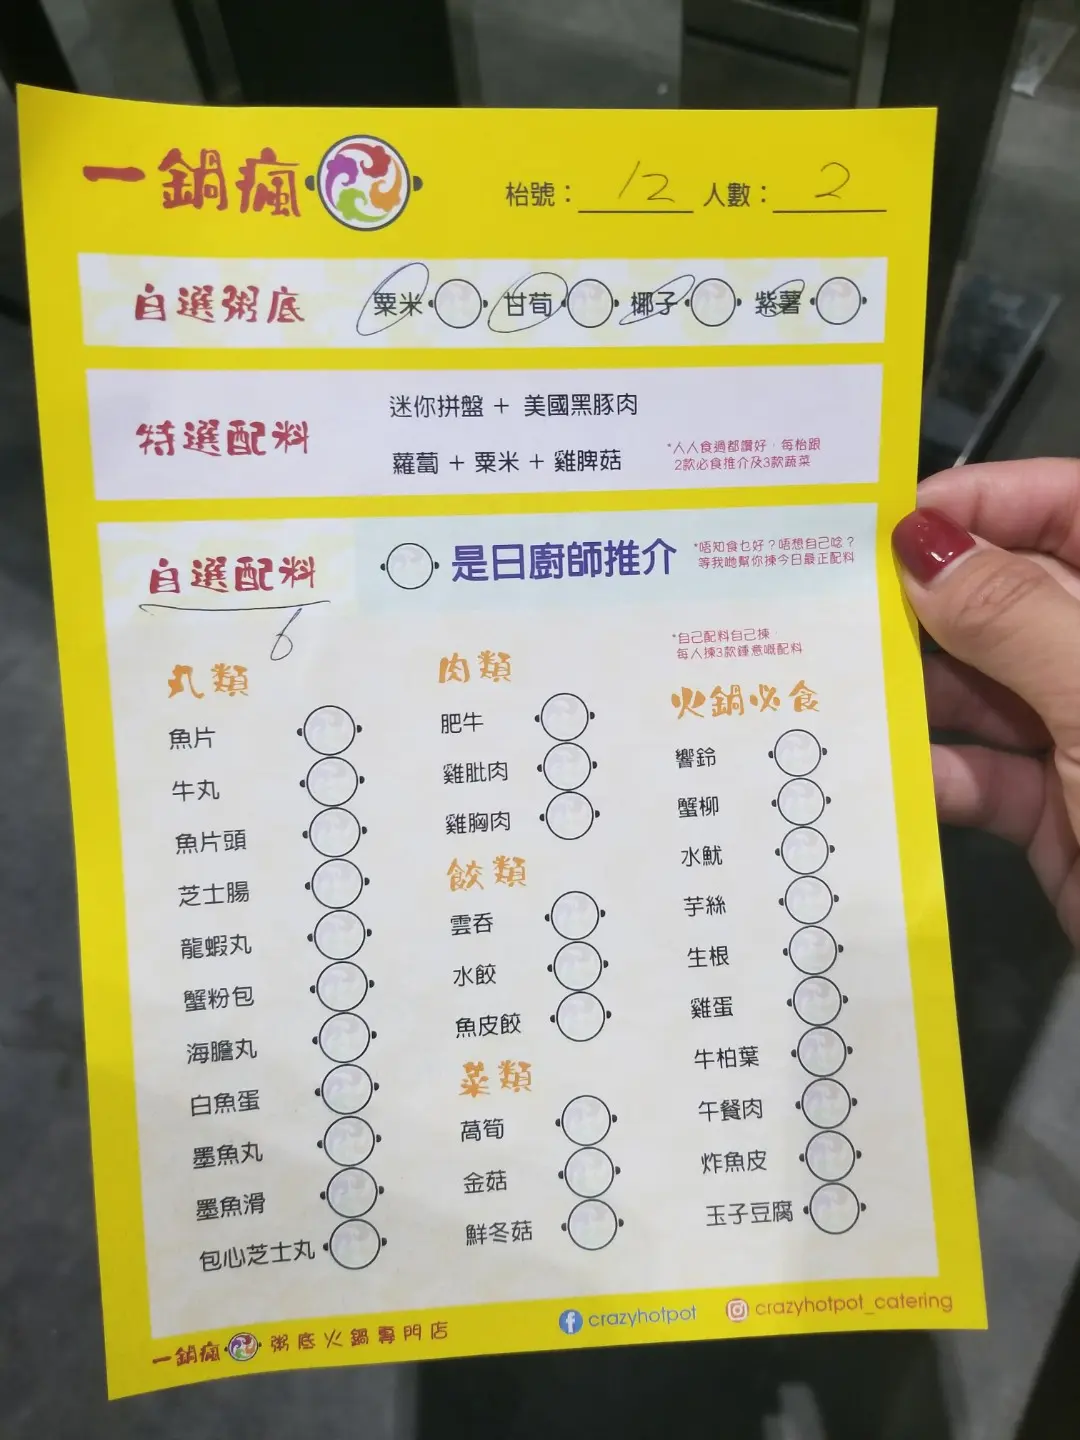 一鍋瘋
枱號：12 人數：2
自選粥底 粟米 甘荀 椰子 紫薯
特選配料
迷你拼盤 + 美國黑豚肉
蘿蔔 + 粟米 + 雞脾菇
*人人食過都讚好，每枱跟
2款必食推介及3款蔬菜
自選配料
6
是日廚師推介
*唔知食乜好？唔想自己唸？
等我哋幫你揀今日最正配料
*自己配料自己揀，
每人揀3款鍾意嘅配料
丸類
魚片
牛丸
魚片頭
芝士腸
龍蝦丸
蟹粉包
海膽丸
白魚蛋
墨魚丸
墨魚滑
包心芝士丸
肉類
肥牛
雞肶肉
雞胸肉
餃類
雲吞
水餃
魚皮餃
菜類
萵筍
金菇
鮮冬菇
火鍋必食
響鈴
蟹柳
水魷
芋絲
生根
雞蛋
牛柏葉
午餐肉
炸魚皮
玉子豆腐
一鍋瘋 粥底火鍋專門店
crazyhotpot
crazyhotpot_catering